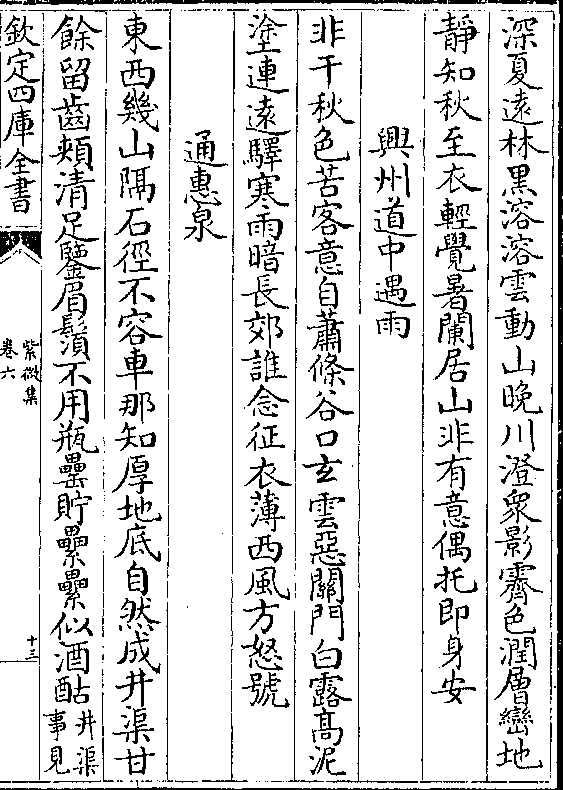 深夏遠林黒溶溶雲動山晩川澄衆影霽色潤層巒地
静知秋至衣輕覺暑闌居山非有意偶托即身安
興州道中遇雨
非干秋色苦客意自蕭條谷口玄雲惡關門白露髙泥
塗連遠驛寒雨暗長郊誰念征衣薄西風方怒號
通惠泉
東西幾山隔石徑不容車那知厚地底自然成井渠甘
餘留齒頰清足鑒眉鬚不用瓶罍貯纍纍似酒酤井渠事見
欽定四庫全書
紫微集
卷六
十三